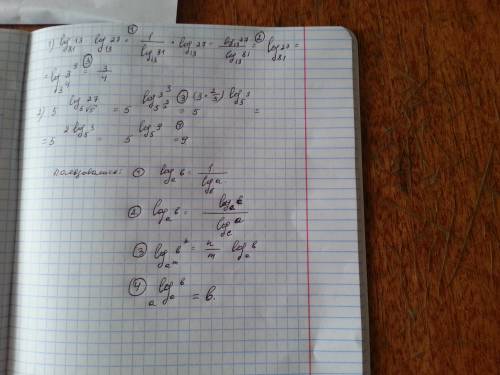 1) log₈₁ 13 · log₁₃ 27 =① 1/log₁₃ 81 · log₁₃ 27 = log₁₃ 27/log₁₃ 81 =② log₈₁ 27 =
= log₃⁴ 3³ =③ 3/4
2) 5^(log₅√₅ 27) = 5^(log₅^(3/2) 3³) =③ 5^((3·2/3) log₅ 3) =
= 5^(2 log₅ 3) = 5^(log₅ 9) =④ 9
Пользовались: ① logₐ b = 1/log_b a
② logₐ b = log_c b/log_c a
③ log_(aᵐ) bⁿ = n/m logₐ b
④ a^(logₐ b) = b.